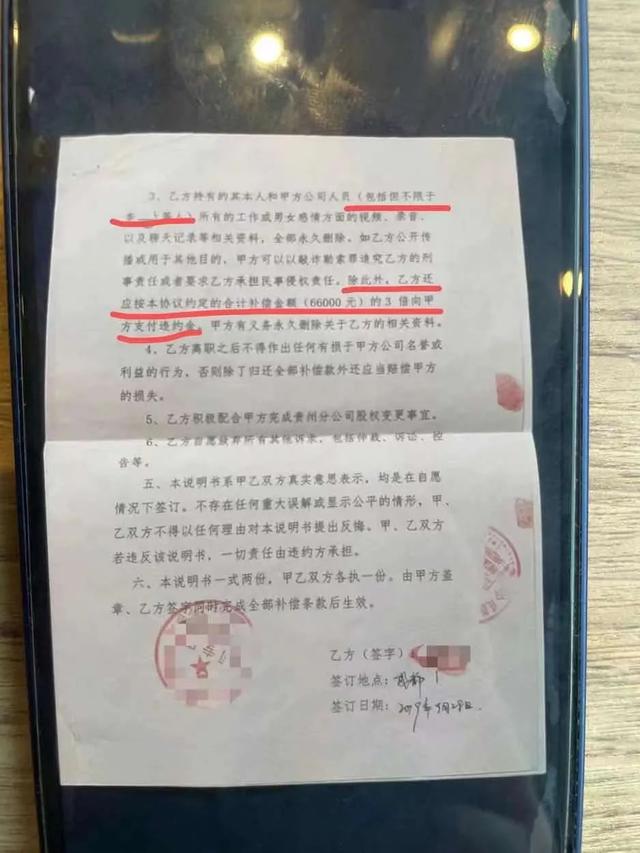 3、乙方持有的其本人和甲方公司人员（包括但不限于
等人）所有的工作或男女感情方面的视频、录音、
以及聊天记录等相关资料，全部永久删除。如乙方公开传
播或用于其他目的，甲方可以以敲诈勒索罪追究乙方的刑
事责任或者要求乙方承担民事侵权责任。除此外，乙方还
应按本协议约定的合计补偿金额（66000元）的3倍向甲
方支付违约金。甲方有义务永久删除关于乙方的相关资料。
4、乙方离职之后不得作出任何有损于甲方公司名誉或
利益的行为，否则除了归还全部补偿款外还应当赔偿甲方
的损失。
5、乙方积极配合甲方完成贵州分公司股权变更事宜。
6、乙方自愿放弃所有其他诉求，包括仲裁、诉讼、控
告等。
五、本说明书系甲乙双方真实意思表示，均是在自愿
情况下签订。不存在任何重大误解或显示公平的情形，甲、
乙双方不得以任何理由对本说明书提出反悔。甲、乙双方
若违反该说明书，一切责任由违约方承担。
六、本说明书一式两份，甲乙双方各执一份。由甲方盖
章、乙方签字同时完成全部补偿条款后生效。
乙方（签字）：
签订地点：成都
签订日期：2019年5月29日